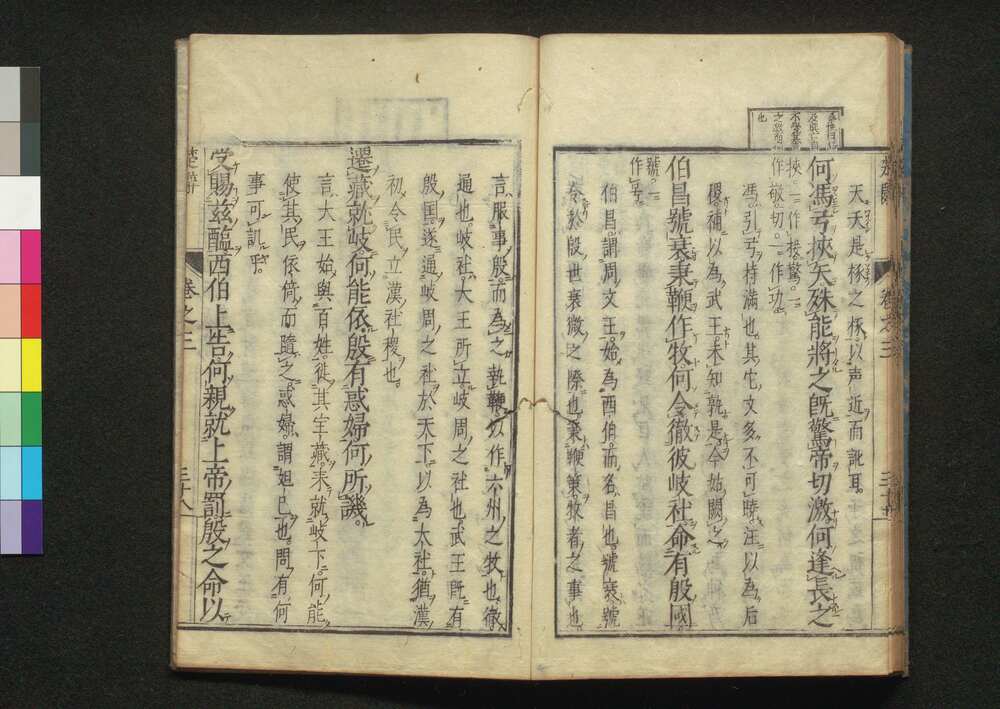 夭夭是椓之椓以声近而訛耳
何馮弓挾矢殊能將之既驚帝切激何逢長之
挾一作接驚一
作敬切一作功
馮引弓持滿也其它文多不可曉注以為后
稷補以為武王未知孰是今姑闕之
伯昌號衰秉鞭作牧何令徹彼岐社命有殷國
號一
作号
伯昌謂周文王始為西伯而名昌也號衰號
令於殷世衰微之際也秉鞭策牧者之事也
言服事殷而為之執鞭以作六州之牧也徹
通也岐社大王所立岐周之社也武王既有
殷国遂通岐周之社於天下以為太社猶漢
初令民立漢社稷也
遷藏就岐何能依殷有惑婦何所譏
言大王始與百姓徙其宝藏来就岐下何能
使其民依倚而隨之惑婦謂妲己也問有何
事可訊乎
受賜茲醢西伯上告何親就上帝罰殷之命以
卷之三
三十八